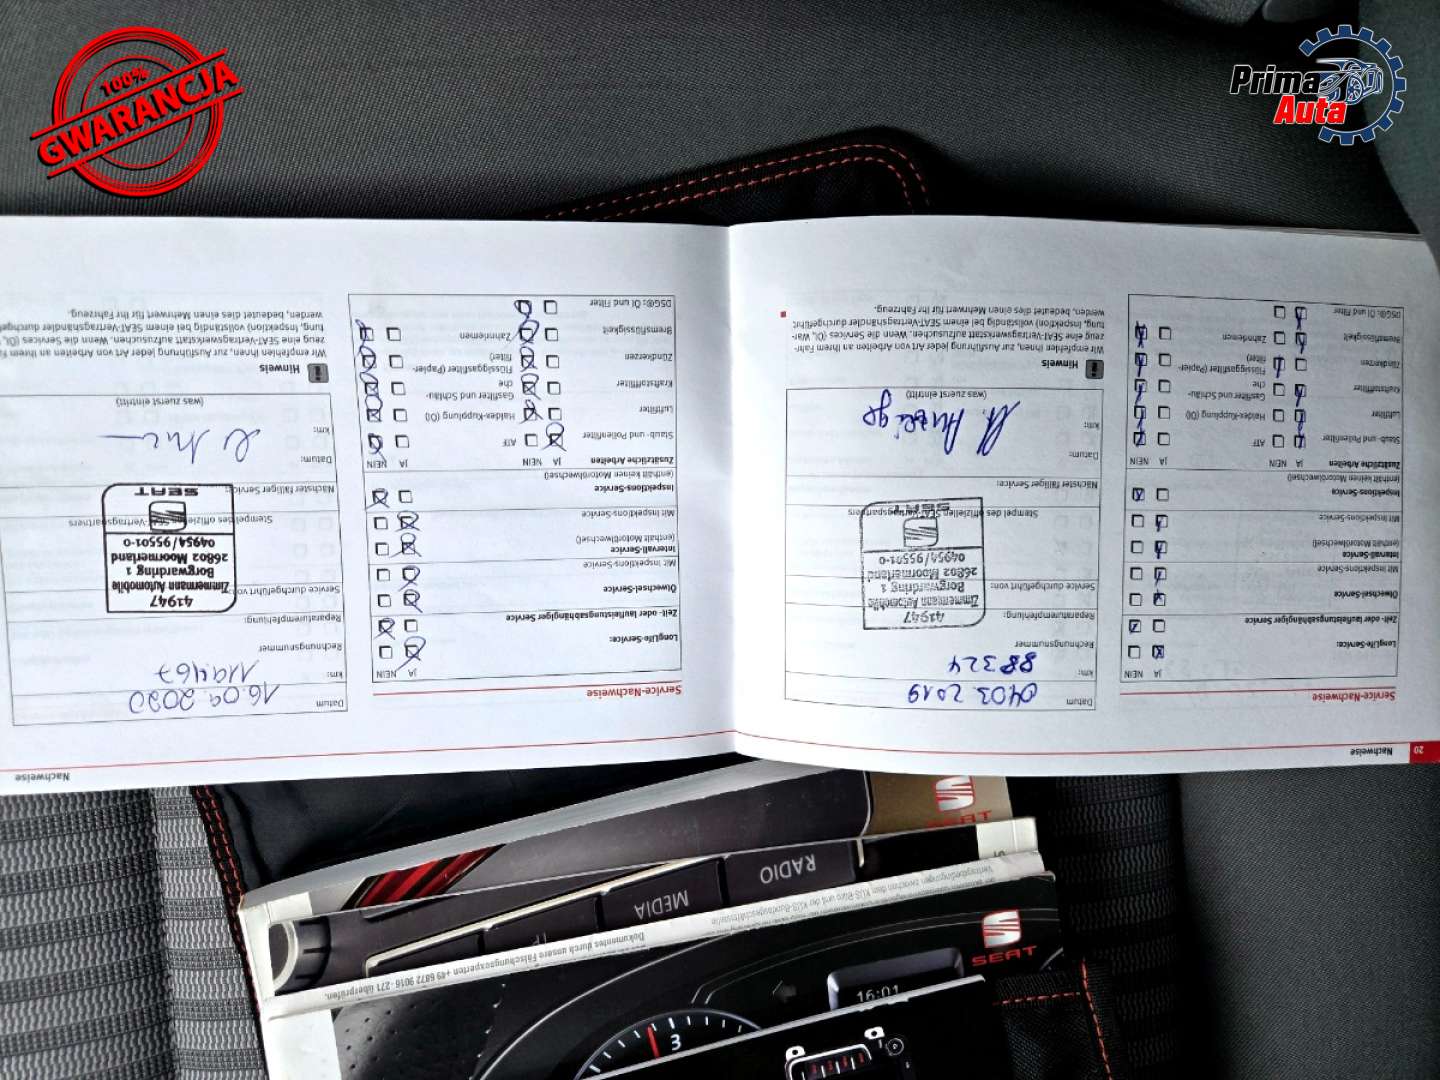 100%
GWARANCJA
Prima
Auta
20
Nachweise
Service-Nachweise
JA NEIN
LongLife-Service:
Zeit- oder laufleistungsabhängiger Service
Ölwechsel-Service
Mit Inspektions-Service
Intervall-Service
(enthält Motorölwechsel)
Mit Inspektions-Service
Inspektions-Service
(enthält keinen Motorölwechsel)
Zusätzliche Arbeiten JA NEIN JA NEIN
Staub- und Pollenfilter ATF
Luftfilter Haldex-Kupplung (Öl)
Kraftstofffilter Gasfilter und Schläu-
che
Zündkerzen Flüssiggasfilter (Papier-
filter)
Bremsflüssigkeit Zahnriemen
DSG®: Öl und Filter
Datum 04.03.2019
km: 88324
Rechnungsnummer
Reparaturempfehlung:
Service durchgeführt von:
41947
Zimmermann Automobile
Borgwardring 1
26802 Moormerland
04954/95501-0
SEAT
Stempel des offiziellen SEAT-Vertragspartners
Nächster fälliger Service:
Datum:
km:
(was zuerst eintritt)
Hinweis
Wir empfehlen Ihnen, zur Ausführung jeder Art von Arbeiten an Ihrem Fahr-
zeug eine SEAT-Vertragswerkstatt aufzusuchen. Wenn die Services (Öl, War-
tung, Inspektion) vollständig bei einem SEAT-Vertragshändler durchgeführt
werden, bedeutet dies einen Mehrwert für Ihr Fahrzeug.
Nachweise
Service-Nachweise
JA NEIN
LongLife-Service:
Zeit- oder laufleistungsabhängiger Service
Ölwechsel-Service
Mit Inspektions-Service
Intervall-Service
(enthält Motorölwechsel)
Mit Inspektions-Service
Inspektions-Service
(enthält keinen Motorölwechsel)
Zusätzliche Arbeiten JA NEIN JA NEIN
Staub- und Pollenfilter ATF
Luftfilter Haldex-Kupplung (Öl)
Kraftstofffilter Gasfilter und Schläu-
che
Zündkerzen Flüssiggasfilter (Papier-
filter)
Bremsflüssigkeit Zahnriemen
DSG®: Öl und Filter
Datum 16.09.2020
km: 119467
Rechnungsnummer
Reparaturempfehlung:
Service durchgeführt von:
41947
Zimmermann Automobile
Borgwardring 1
26802 Moormerland
04954/95501-0
SEAT
Stempel des offiziellen SEAT-Vertragspartners
Nächster fälliger Service:
Datum:
km:
(was zuerst eintritt)
Hinweis
Wir empfehlen Ihnen, zur Ausführung jeder Art von Arbeiten an Ihrem
zeug eine SEAT-Vertragswerkstatt aufzusuchen. Wenn die Services (Öl,
tung, Inspektion) vollständig bei einem SEAT-Vertragshändler
werden, bedeutet dies einen Mehrwert für Ihr Fahrzeug.
SEAT
RADIO
MEDIA
Dokumentes durch unsere Fälschungsexperten +49 6872 9016-271 überprüfen.
SEAT
16:01
3